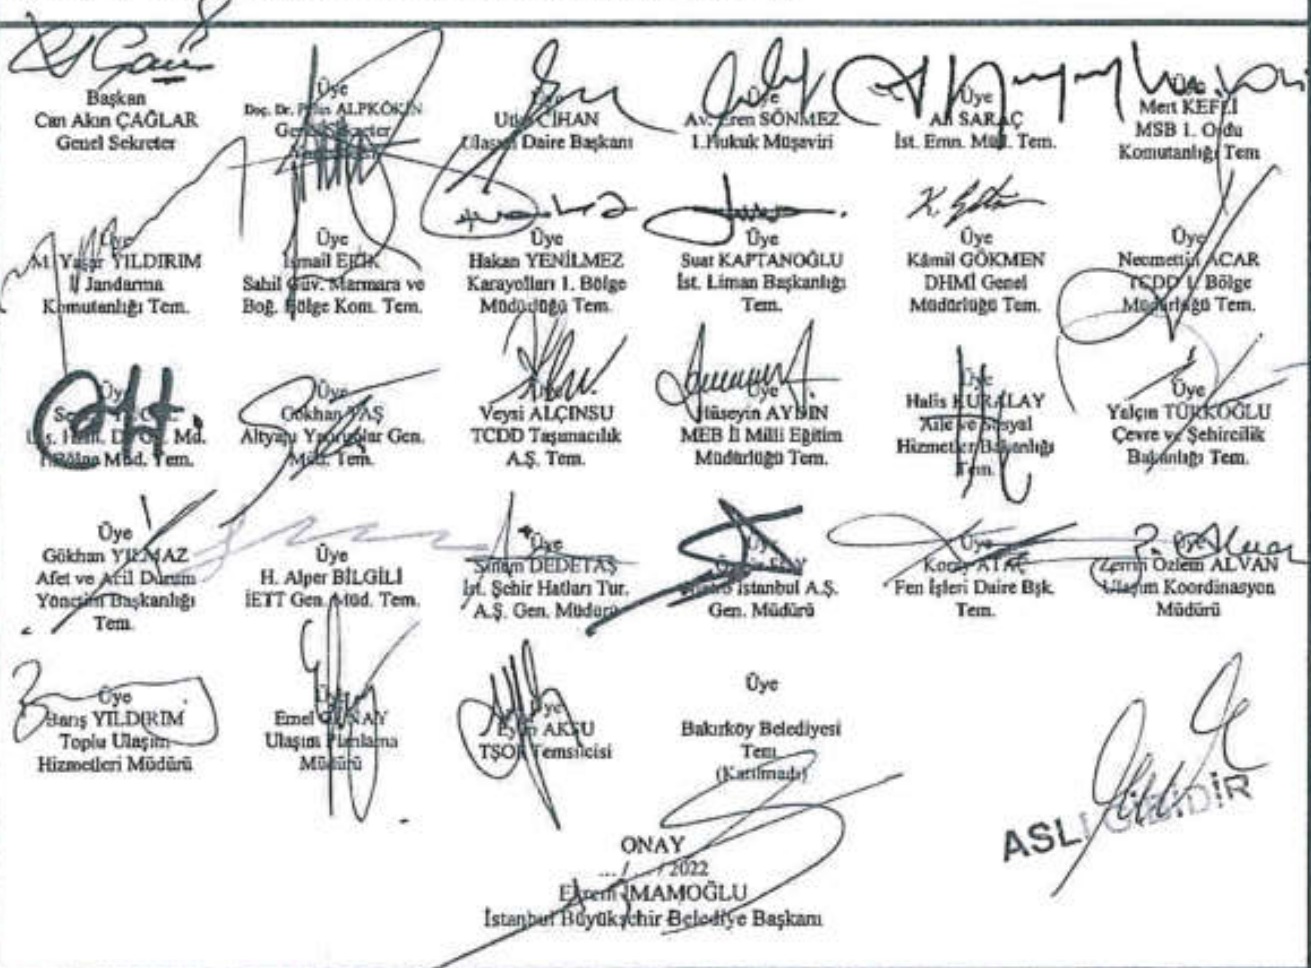 Başkan
Can Akın ÇAĞLAR
Genel Sekreter
Üye
Doç. Dr. Pelin ALPKÖKİN
Genel Sekreter
CİHAN
Ulaşım Daire Başkanı
Üye
Av. Eren SÖNMEZ
1.Hukuk Müşaviri
Üye
Ali SARAÇ
İst. Emn. Müd. Tem.
Üye
Mert KEFLİ
MSB 1. Ordu
Komutanlığı Tem
Üye
M. Yaşar YILDIRIM
İl Jandarma
Komutanlığı Tem.
Üye
İsmail
Sahil Güv. Marmara ve
Boğ. Bölge Kom. Tem.
Üye
Hakan YENİLMEZ
Karayolları 1. Bölge
Müdürlüğü Tem.
Üye
Suat KAPTANOĞLU
İst. Liman Başkanlığı
Tem.
Üye
Kâmil GÖKMEN
DHMİ Genel
Müdürlüğü Tem.
Üye
Necmettin ACAR
TCDD 1. Bölge
Müdürlüğü Tem.
Üye
Md.
Müd. Tem.
Üye
Gökhan
Altyapı Yatırımlar Gen.
Müd. Tem.
Veysi ALÇINSU
TCDD Taşımacılık
A.Ş. Tem.
Üye
Hüseyin AYDIN
MEB İl Milli Eğitim
Müdürlüğü Tem.
Üye
Halis KURALAY
Aile ve Sosyal
Hizmetler Bakanlığı
Tem.
Üye
Yalçın TÜRKOĞLU
Çevre ve Şehircilik
Bakanlığı Tem.
Üye
Gökhan YILMAZ
Afet ve Acil Durum
Yönetim Başkanlığı
Tem.
Üye
H. Alper BİLGİLİ
İETT Gen. Müd. Tem.
Üye
Sinem DEDETAŞ
İst. Şehir Hatları Tur.
A.Ş. Gen. Müdürü
Üye
İstanbul A.Ş.
Gen. Müdürü
Üye
Koray ATAÇ
Fen İşleri Daire Bşk.
Tem.
Üye
Zerrin Özlem ALVAN
Ulaşım Koordinasyon
Müdürü
Üye
Barış YILDIRIM
Toplu Ulaşım
Hizmetleri Müdürü
Üye
Emel
Ulaşım Planlama
Müdürü
Üye
Eyüp AKSU
TŞOF Temsilcisi
Üye
Bakırköy Belediyesi
Tem.
(Katılmadı)
ASLI GİBİDİR
ONAY
... / ... / 2022
Ekrem İMAMOĞLU
İstanbul Büyükşehir Belediye Başkanı